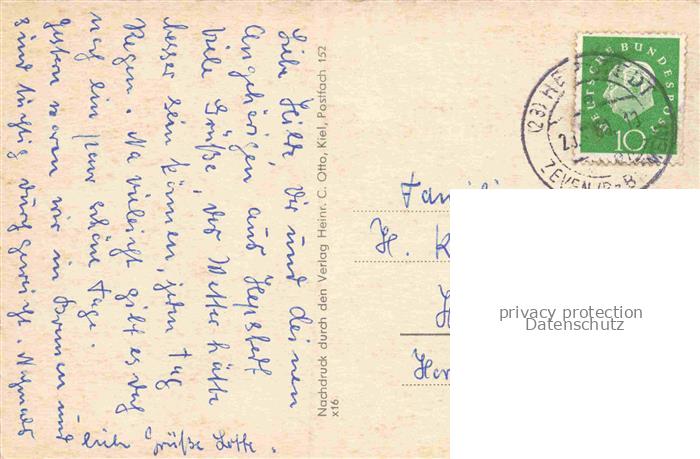 Liebe Hilde, Dir und deinen
Angehörigen aus Hepstedt
viele Grüße, das Wetter hätte
besser sein können, jeden Tag
Regen. Na vieleicht gibt es doch
noch ein paar schöne Tage.
gestern waren wir in Bremen und
sind tüchtig durchgeweicht. Nochmals
liebe Grüße Lotte.
Nachdruck durch den Verlag Heinr. C. Otto, Kiel, Postfach 152
x16
DEUTSCHE BUNDESPOST
10
(23) HEPSTEDT
ZEVEN
Famili
H. K
privacy protection
Datenschutz